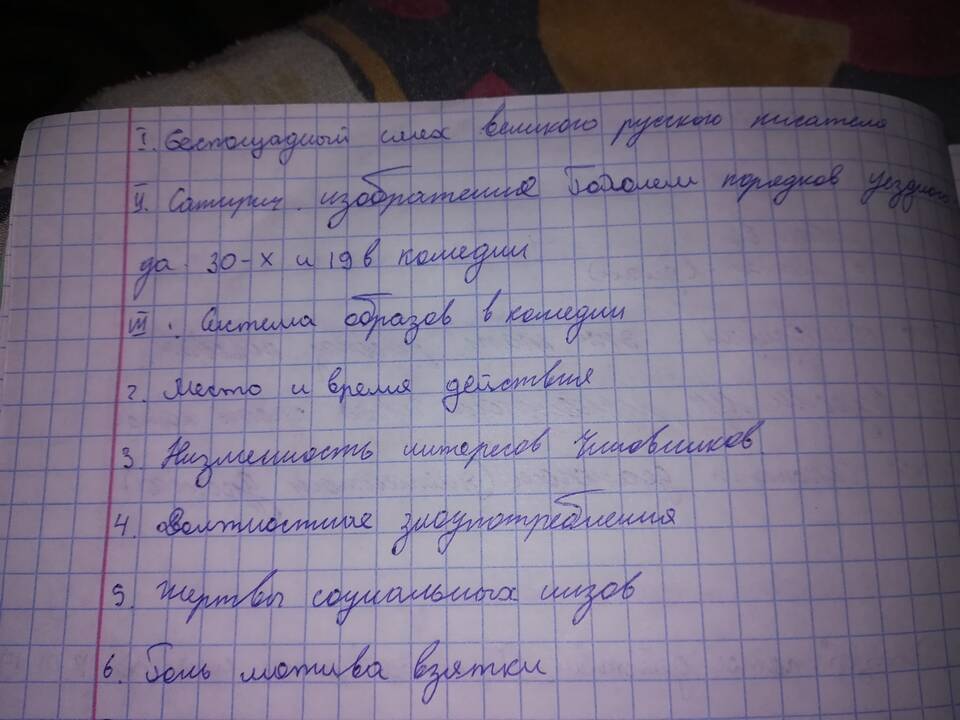 I. Беспощадный смех великого русского писателя
II. Сатирич. изображение Гоголем порядков уездного
да 30-х и 19 в комедии
III. Система образов в комедии
2. Место и время действия
3. Низменность интересов чиновников
4. Должностные злоупотребления
5. Жертвы социальных низов
6. Боль мотива взятки